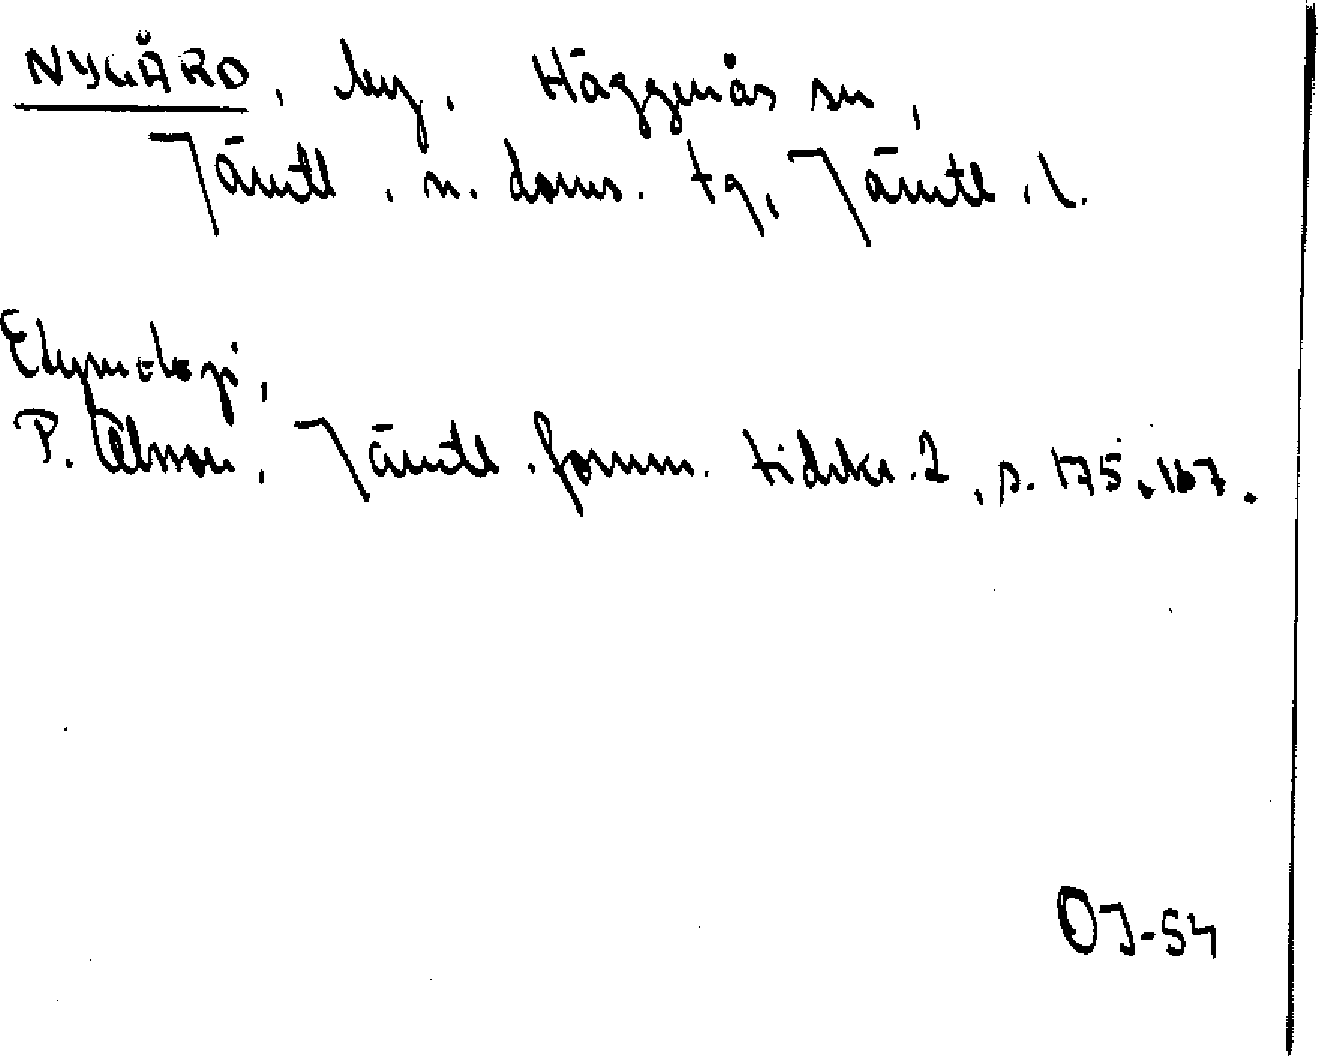 NYGÅRD, by, Häggenås sn,
Jämtl. n. doms. tg, Jämtl. l.
Etymologi,
P. Olsson, Jämtl. fornm. tidskr. 2, s. 175, 167.
OJ-54